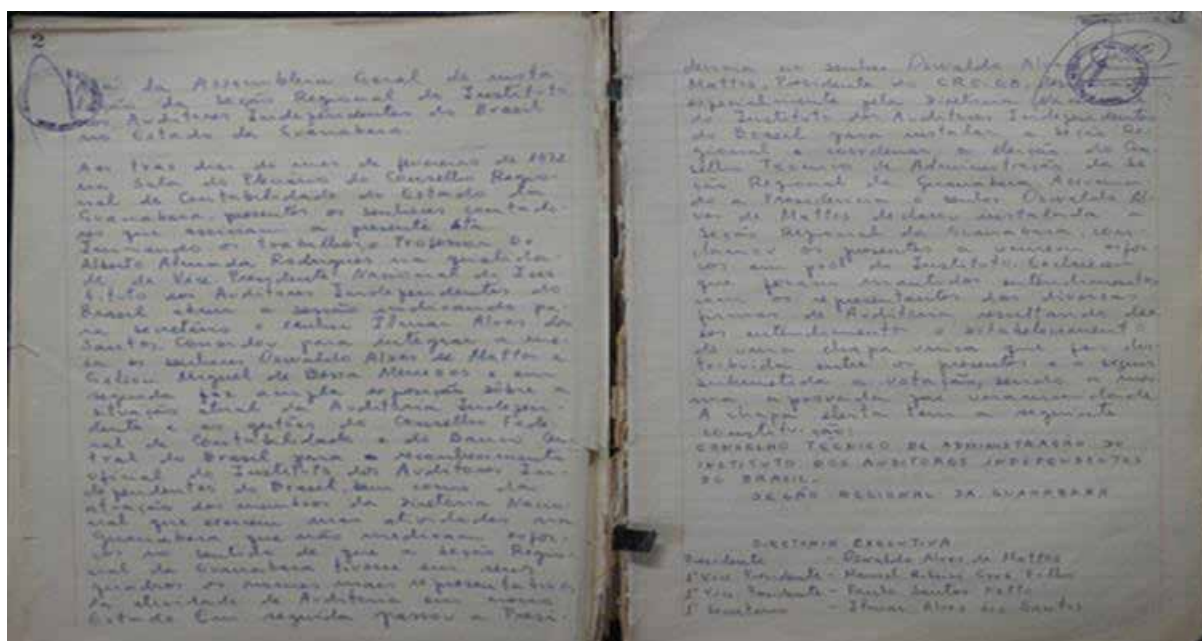 2
Ata da Assembleia Geral de insta
da Seção Regional do Instituto
dos Auditores Independentes do Brasil
no Estado da Guanabara
Aos tres dias do mes de fevereiro de 1972
na Sala do Plenário do Conselho Regio-
nal de Contabilidade do Estado da
Guanabara, presentes os senhores contado-
res que assinam a presente Ata
Iniciando os trabalhos o Professor
Alberto Almada Rodrigues na qualida-
de de Vice Presidente Nacional do Ins
tituto dos Auditores Independentes do
Brasil abriu a sessão indicando pa-
ra secretário o senhor Ilmar Alves dos
Santos Convidou para integrar a me-
sa os senhores Oswaldo Alves de Mattos e
Gelson Miguel de Bessa Menezes e em
seguida fez ampla exposição sôbre a
situação atual da Auditoria Indepen-
dente e as gestões do Conselho Fede
ral de Contabilidade e do Banco Cen
tral do Brasil para o reconhecimento
oficial do Instituto dos Auditores In
dependentes do Brasil, bem como da
atuação dos membros da Diretoria Nacio-
nal que exercem suas atividades na
Guanabara que não mediram esfor-
ços no sentido de que a Seção Regio-
nal da Guanabara tivesse em seus
quadros os nomes mais representativos
da atividade de Auditoria em nosso
Estado Em seguida passou a Presi-
dencia ao senhor Oswaldo Alves
Mattos, Presidente do CRC-GB,
especialmente pela Diretoria
do Instituto dos Auditores Independentes
do Brasil para instalar a Seção Re-
gional e coordenar a eleição do Con
selho Tecnico de Administração da Se
ção Regional da Guanabara. Assumin
do a Presidencia o senhor Oswaldo Al-
ves de Mattos declarou instalada a
Seção Regional da Guanabara,
os presentes a esfor-
ços em prol do Instituto. Esclareceu
que foram mantidos entendimentos
com os representantes das diversas
firmas de Auditoria resultando des
ses entendimentos o estabelecimento
de uma chapa unica que foi dis-
tribuida entre os presentes e a seguir
submetida a votação, sendo a mes
ma aprovada por unanimidade
A chapa eleita tem a seguinte
constituição:
CONSELHO TÉCNICO DE ADMINISTRAÇÃO DO
INSTITUTO DOS AUDITORES INDEPENDENTES
DO BRASIL.
SEÇÃO REGIONAL DA GUANABARA
DIRETORIA EXECUTIVA
Presidente - Oswaldo Alves de Mattos
1º Vice Presidente - Manoel Ribeiro Filho
2º Vice Presidente - Paulo Santos Netto
1º Secretario - Ilmar Alves dos Santos